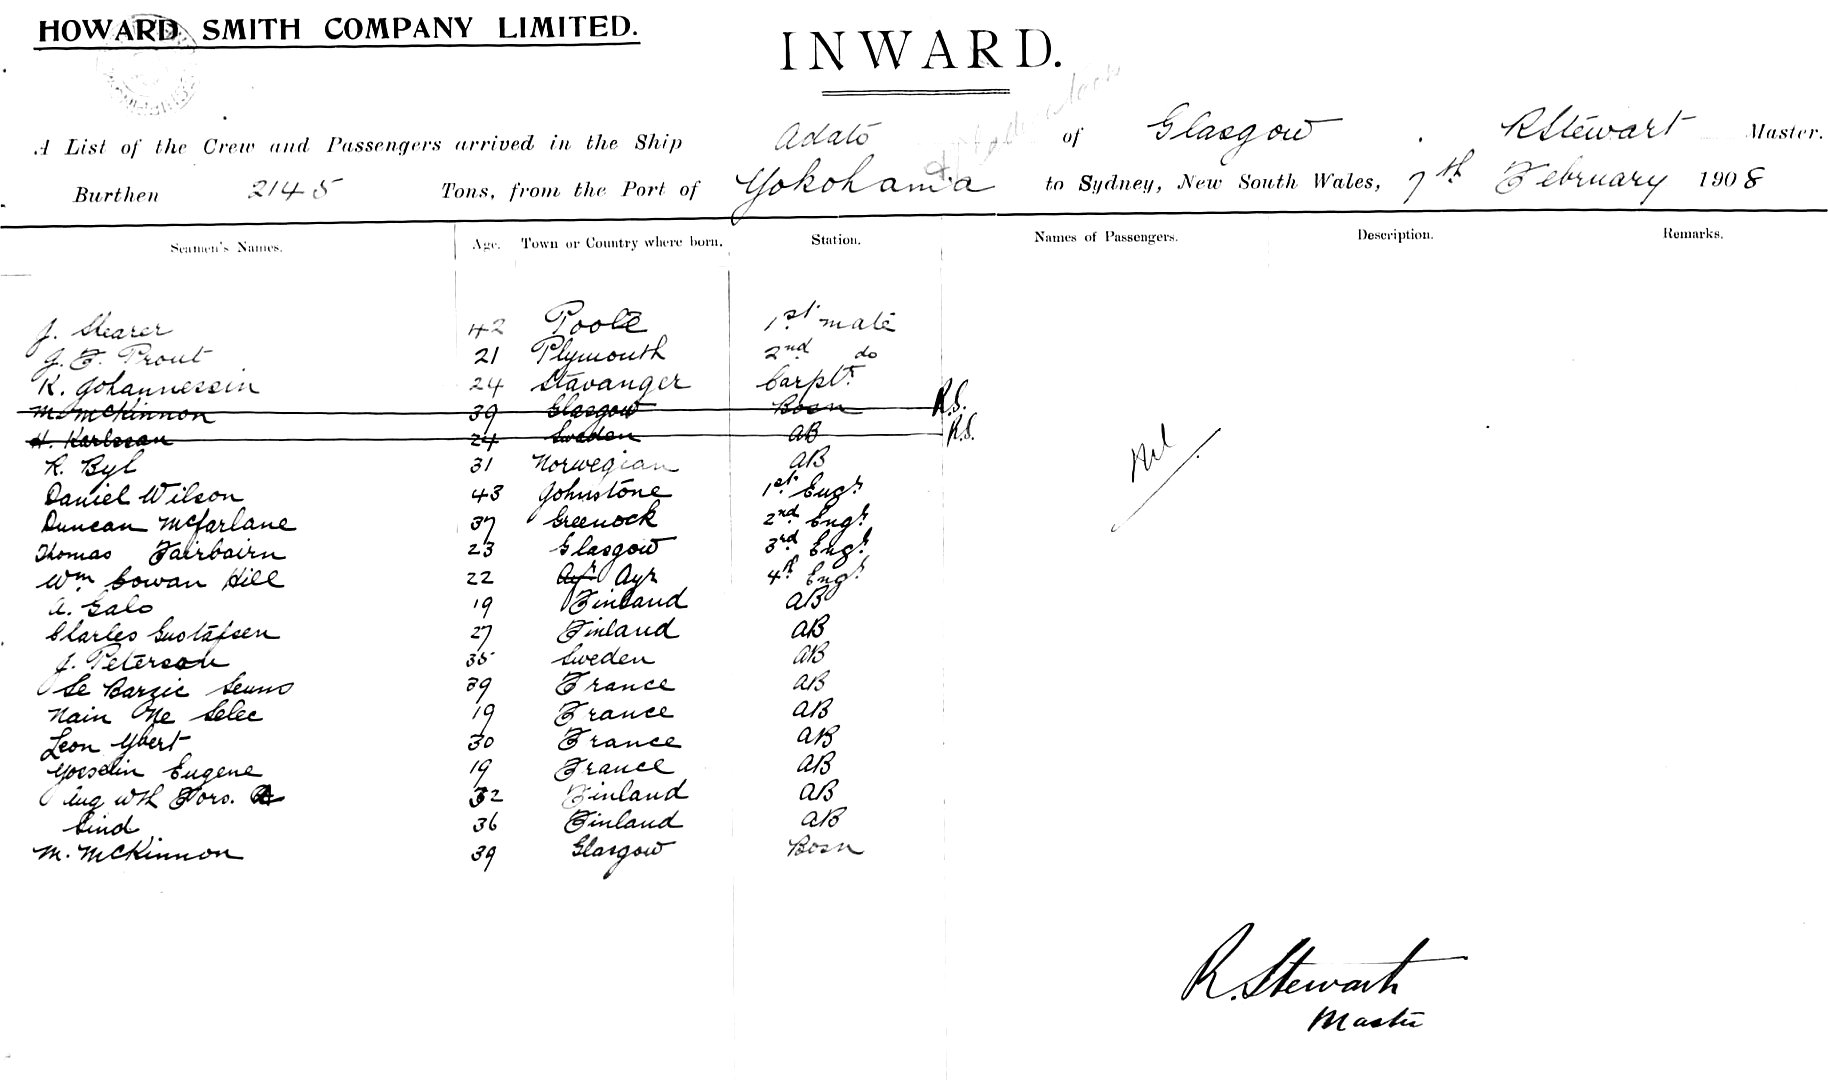 HOWARD SMITH COMPANY LIMITED.
INWARD.
A List of the Crew and Passengers arrived in the Ship Adato of Glasgow . R Stewart Master.
Burthen 2145 Tons, from the Port of Yokohama to Sydney, New South Wales, 7th February 1908
Seamen's Names. Age. Town or Country where born. Station. Names of Passengers. Description. Remarks.
J. Shearer 42 Poole 1st mate
J. F. Prout 21 Plymouth 2nd do
K. Johannessin 24 Stavanger Carptr
M. McKinnon 39 Glasgow Bosn R.S.
H. Karlsson 24 Sweden AB R.S.
K. Byl 31 Norwegian AB
Nil
Daniel Wilson 43 Johnstone 1st Engr
Duncan McFarlane 37 Greenock 2nd Engr
Thomas Fairbairn 23 Glasgow 3rd Engr
Wm Cowan Hill 22 Ayr Ayr 4th Engr
A. Galo 19 Finland AB
Charles Gustafsen 27 Finland AB
J. Peterson 35 Sweden AB
Le Barzic 39 France AB
Nain Ne Selec 19 France AB
Leon Ybert 30 France AB
Eugene 19 France AB
32 Finland AB
Lind 36 Finland AB
M. McKinnon 39 Glasgow Bosn
R. Stewart
Master